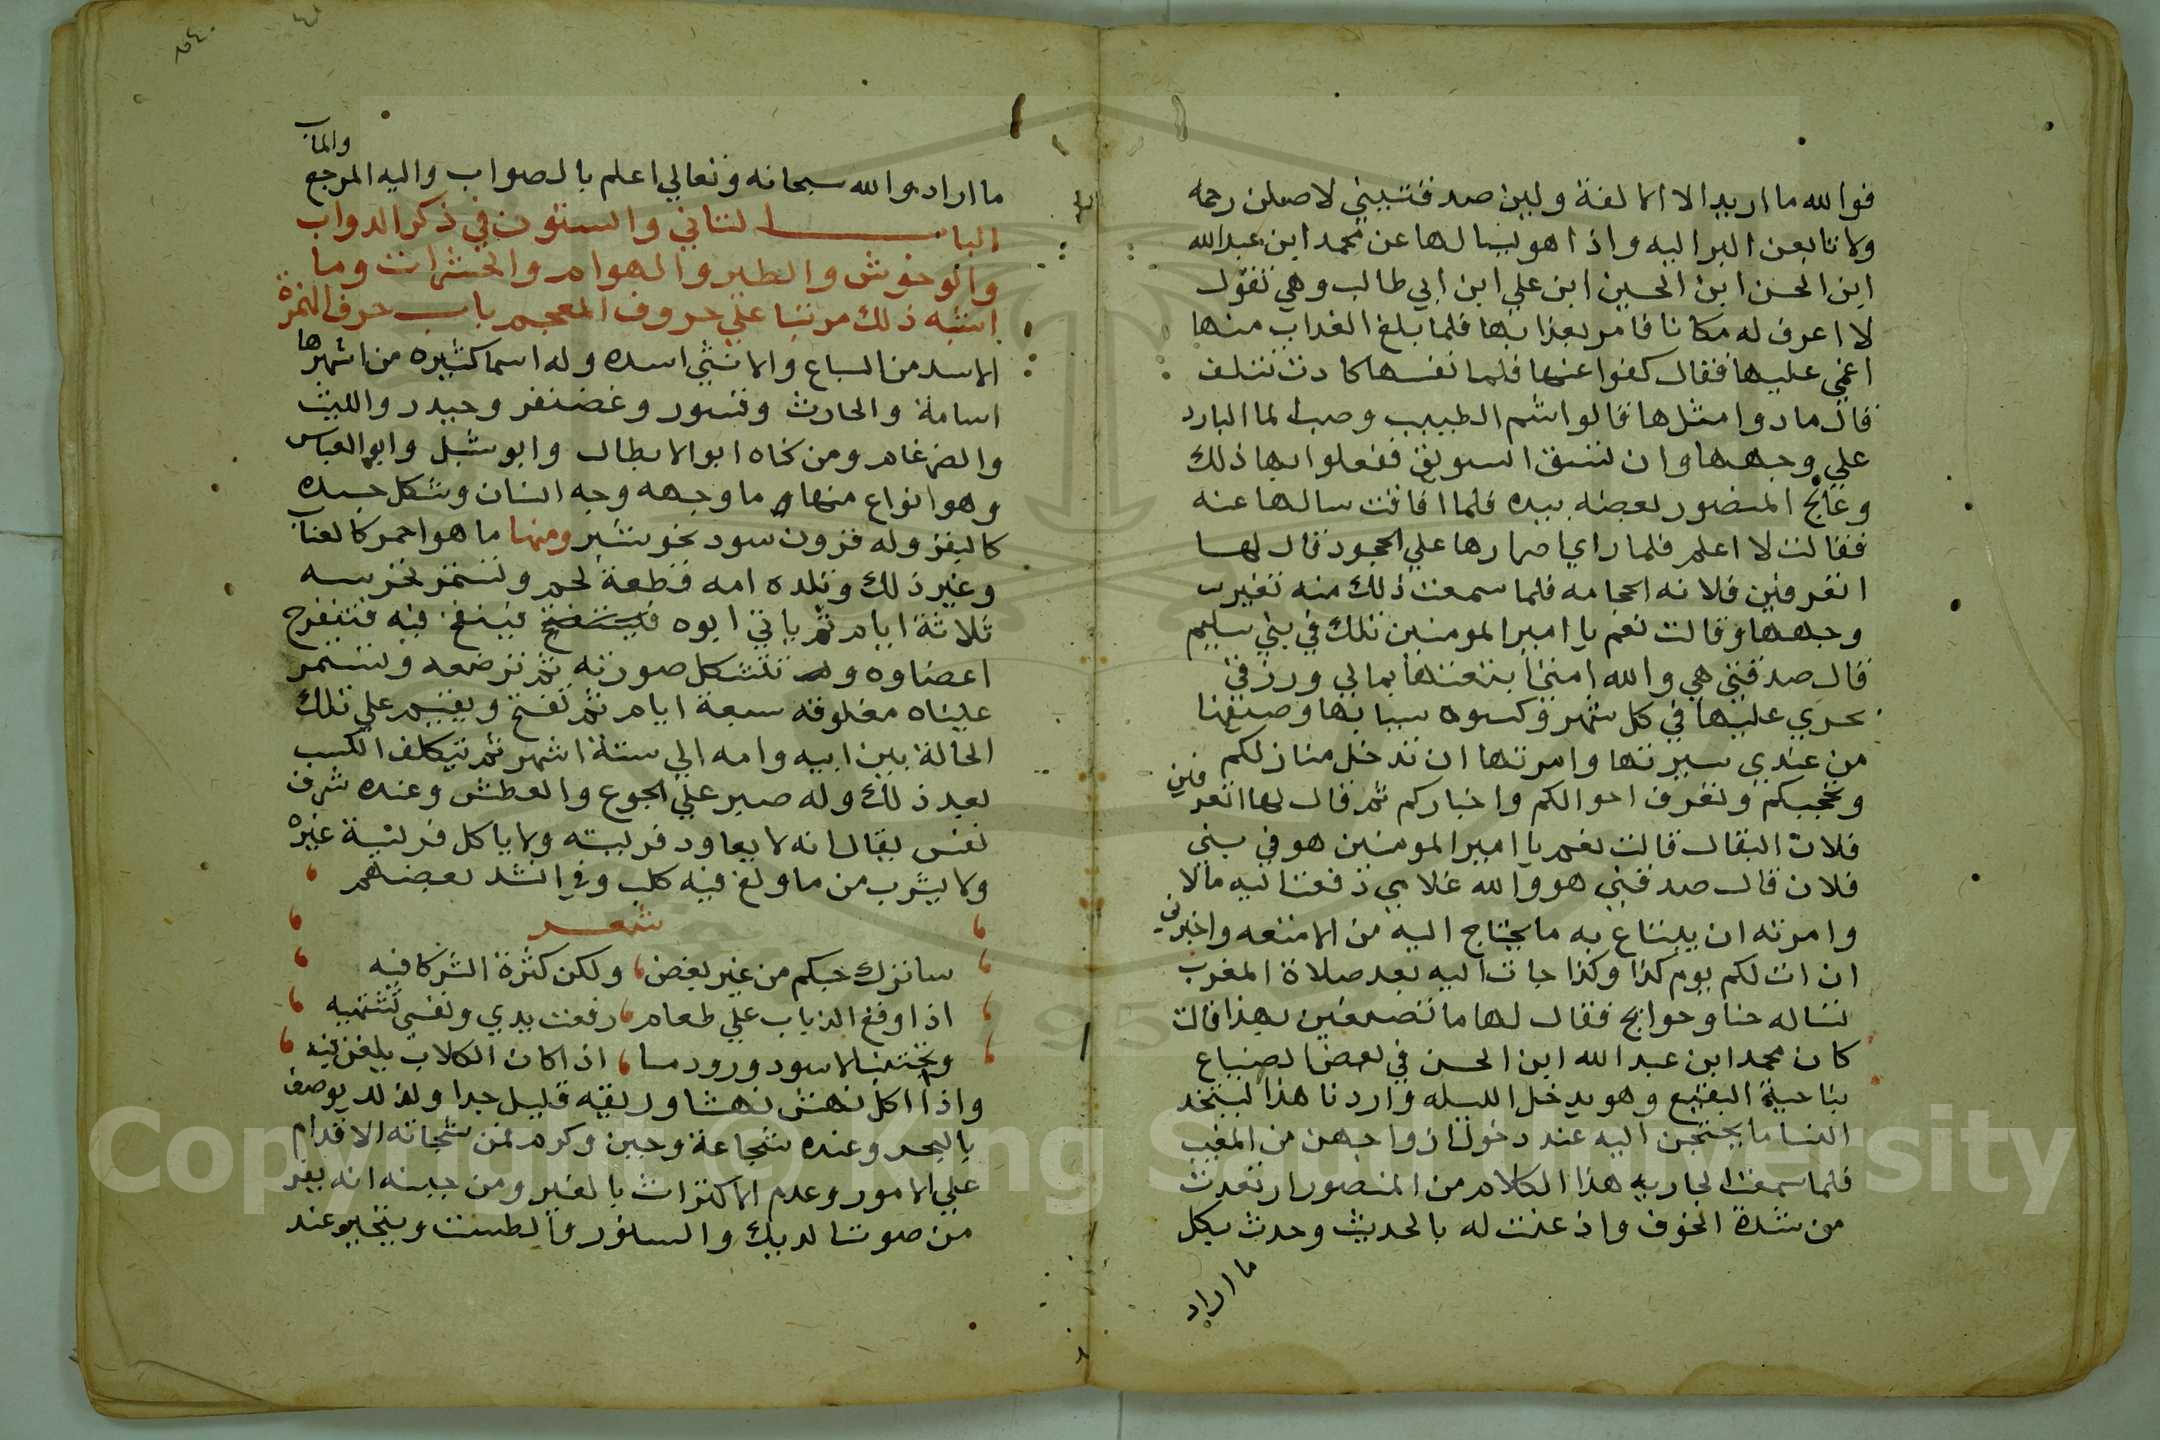 فوالله ما اريد الا الالفة ولين صدقتيني لاصلن رحمه
ولاتابعن البر اليه واذا هو يسالها عن محمد ابن عبدالله
ابن الحسن ابن الحسين ابن علي ابن ابي طالب وهي تقول
لا اعرف له مكانا فامر بعذابها فلما بلغ العذاب منها
اغمي عليها فقال كفوا عنها فلما نفسها كادت تتلف
قال ما دوا مثلها قالوا شم الطيب وصب الما البارد
علي وجهها وان تسق السويق ففعلوا بها ذلك
وعالج المنصور بعضه بيده فلما افاقت سالها عنه
فقالت لا اعلم فلما راي اصرارها علي الجحود قال لها
اتعرفين فلانه الحجامه فلما سمعت ذلك منه تغيرت
وجهها وقالت نعم يا امير المومنين تلك في بني سليم
قال صدقتي هي والله امتي ابتعتها بمالي ورزقي
يجري عليها في كل شهر وكسوه ثيابها وصيفها
من عندي سيرتها وامرتها ان تدخل منازلكم
وتحجبكم وتعرف احوالكم واخباركم ثم قال لها اتعرفين
فلان البقال قالت نعم يا امير المومنين هو في بني
فلان قال صدقتي هو والله غلامي دفعت اليه مالا
وامرته ان يبتاع به ما يحتاج اليه من الامتعه واخبرني
ان امة لكم يوم كذا وكذا جات اليه بعد صلاة المغرب
تساله حنا وحوايج فقال لها ما تصنعين بهذا قالت
كان محمد ابن عبد الله ابن الحسن في بعض الضياع
بناحية البقيع وهو يدخل الليله واردنا هذا ليتخد
النسا ما يحتجن اليه عند دخول ازواجهن من المغيب
فلما سمعت الجاريه هذا الكلام من المنصور ارتعدت
من شدة الخوف واذعنت له بالحديث وحدث بكل
ما اراد
ما اراد والله سبحانه وتعالي اعلم بالصواب واليه المرجع والماب
الباب الثاني والستون في ذكر الدواب
والوحوش والطير والهوام والحشرات وما
اشبه ذلك مرتبا علي حروف المعجم باب حرف الهمزة
الاسد من السباع والانثي اسده وله اسما كثيره من اشهرها
اسامة والحارث وقسور وغضنفر وحيدر والليث
والضرغام ومن كناه ابو الابطال وابو شبل وابو العباس
وهو انواع منها ما وجهه وجه انسان وشكل جسده
كالبقر وله قرون سود نحو شبر ومنها ما هو احمر كالعناب
وغير ذلك وتلده امه قطعة لحم وتستمر تحرسه
ثلاثة ايام ثم ياتي ابوه فينفخ فيه فتنفرج
اعضاوه وتتشكل صورته ثم ترضعه وتستمر
عيناه مغلوقه سبعة ايام ثم تفتح ويقيم علي تلك
الحالة بين ابيه وامه الي ستة اشهر ثم يتكلف الكسب
بعد ذلك وله صبر علي الجوع والعطش وعنده شرف
نفس يقال انه لا يعاود فريسته ولا ياكل فريسة غيره
ولا يشرب من ما ولغ فيه كلب وفي انشد بعضهم
شعر
ساترك حبكم من غير بغض ، ولكن كثرة الشركا فيه
اذا وقع الذباب علي طعام ، رفعت يدي ونفسي تشتهيه
وتجتنب الاسود ورود ما ، اذا كان الكلاب يلغن فيه
واذا اكل نهش نهشا وريقه قليل جدا ولذلك يوصف
بالبخر وعنده شجاعة وجبن وكرم فمن شجاعته الاقدام
علي الامور وعدم الاكتراث بالغير ومن جبنه انه يفر
من صوت الديك والسنور والطست ويتحير عند